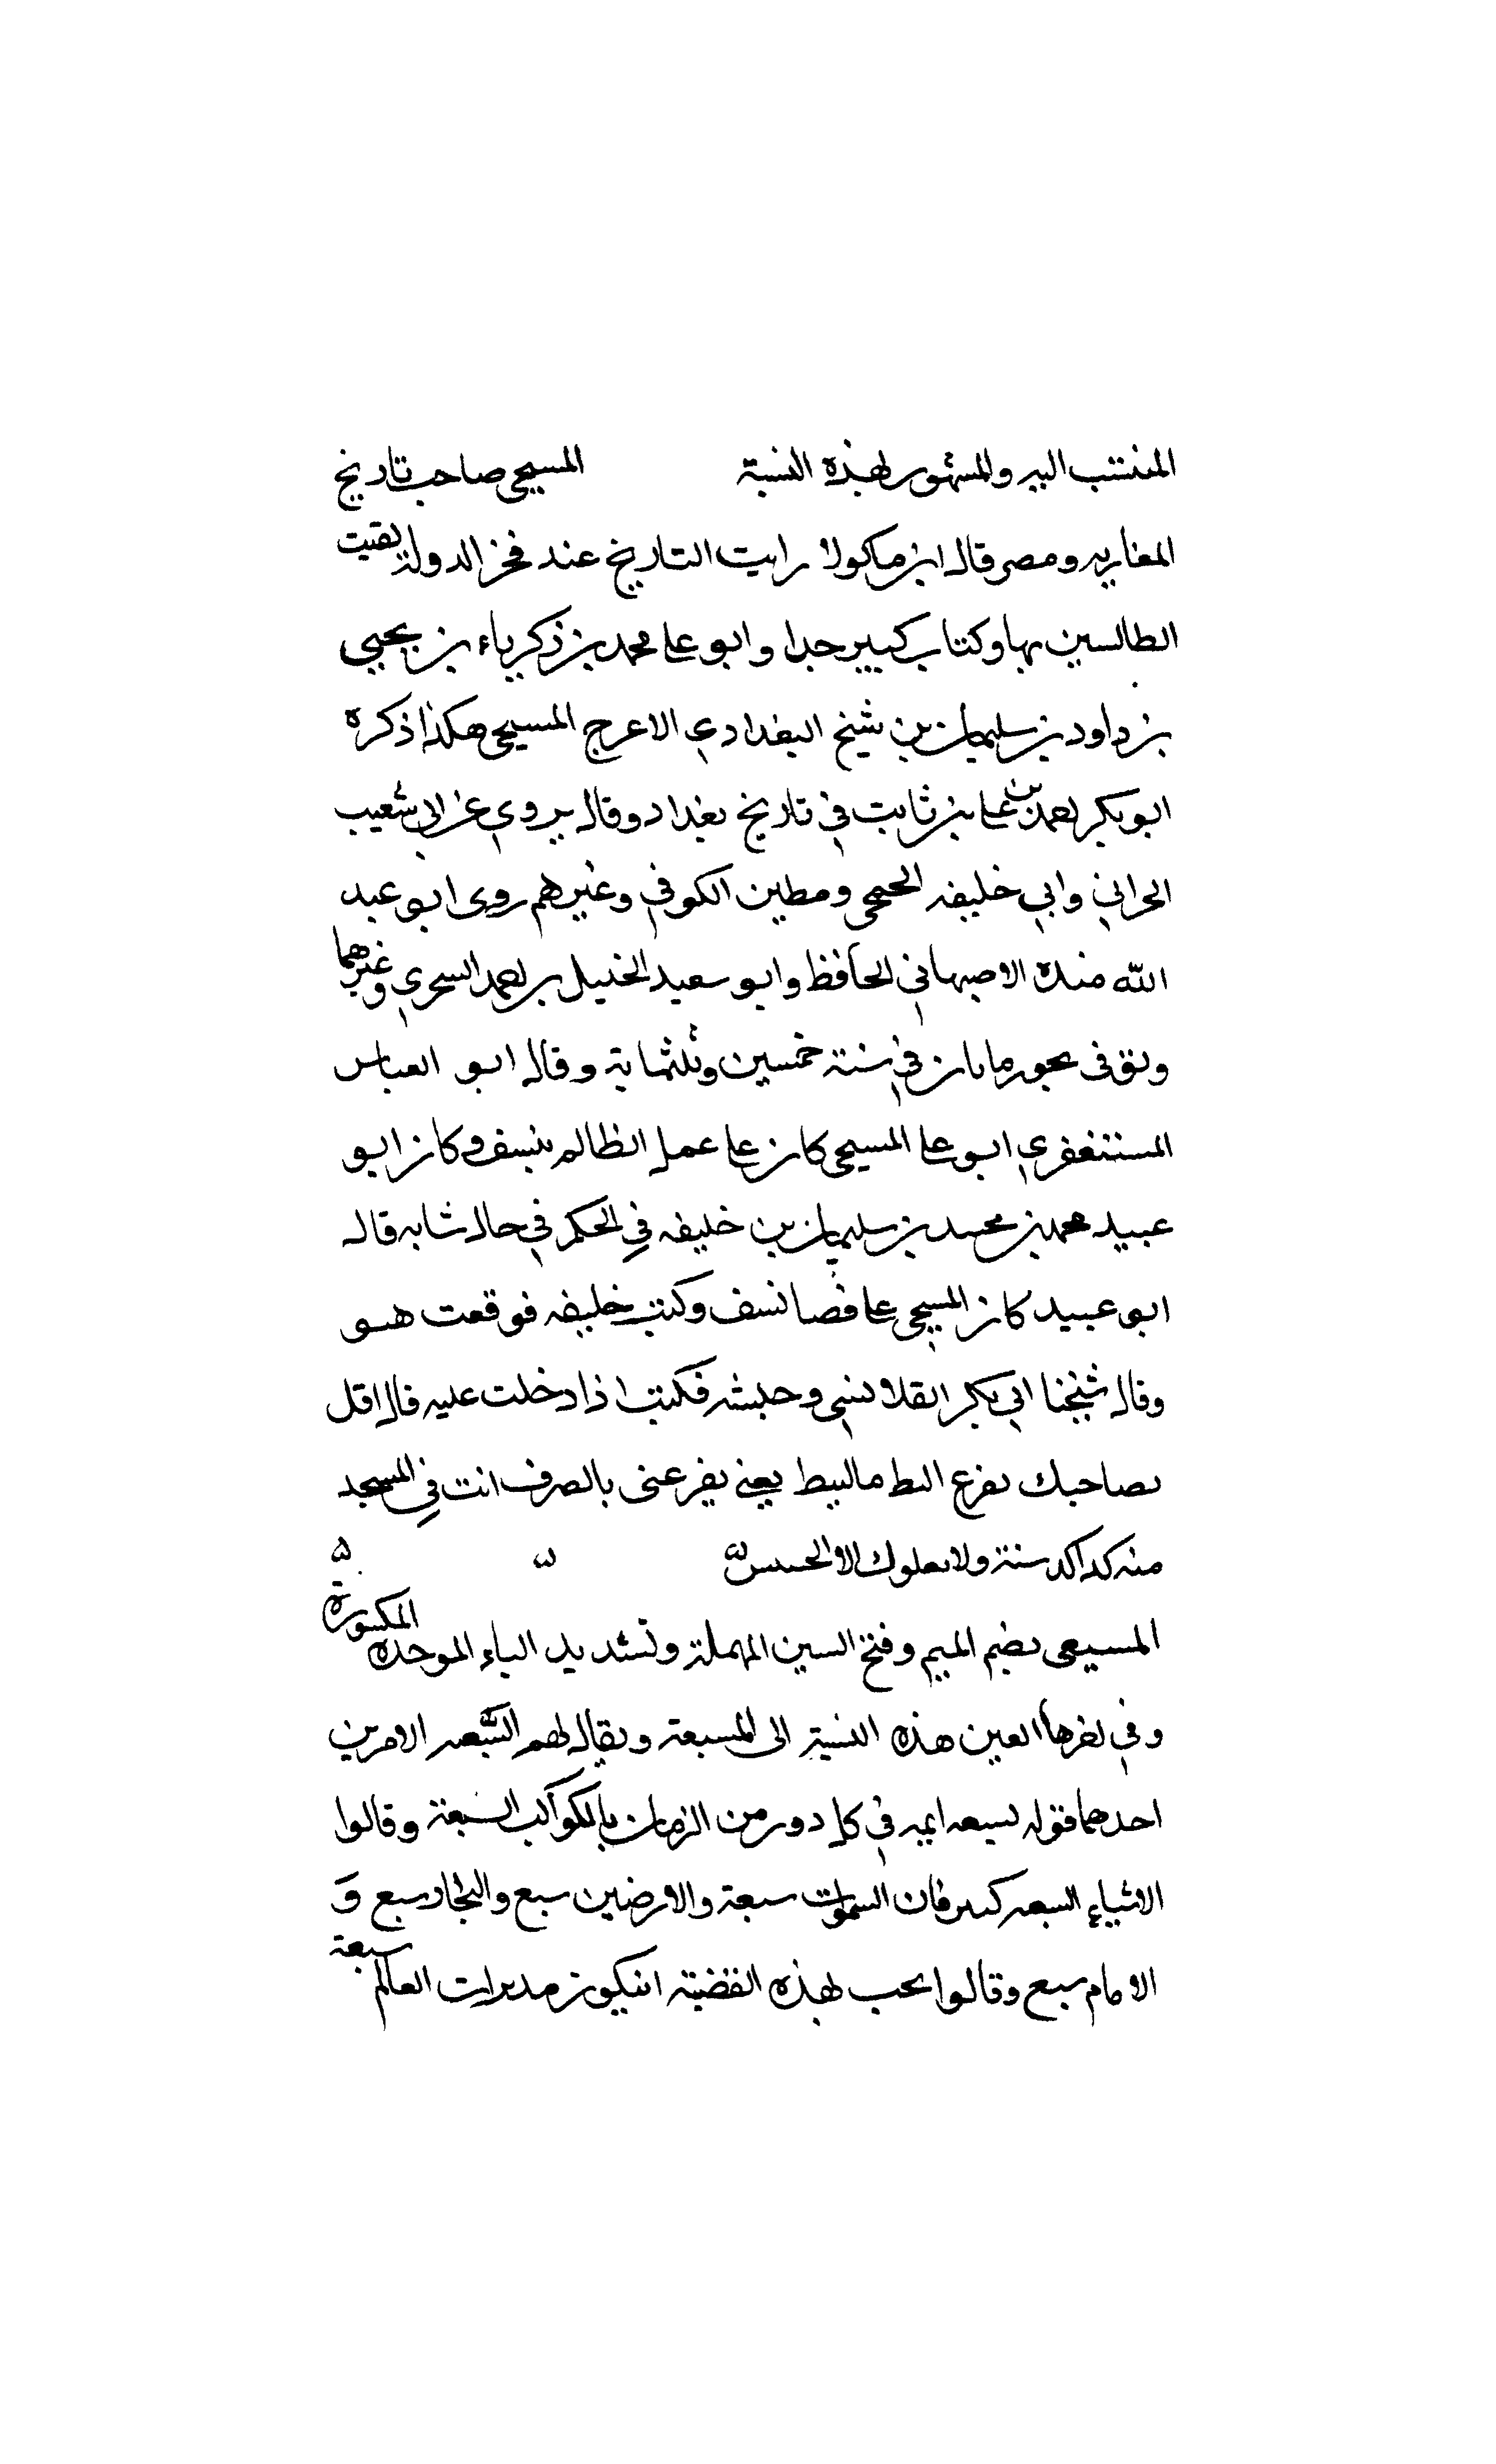 المنتسب اليه والمشهور بهذه النسبة المسيحي صاحب تاريخ
المغاربه ومصر قال ابن ماكولا رايت التاريخ عند فخر الدولة نقيب
الطالبيين بها وكتاب كبير جدا وابو علي محمد بن زكرياء بن يحيى
بن داود بن سليمان بن شيخ البغدادي الاعرج المسيحي هكذا ذكره
ابو بكر احمد بن علي بن ثابت في تاريخ بغداد وقال يروي عن ابي شعيب
الحراني وابي خليفه الجمحي ومطين الكوفي وغيرهم روى ابو عبد
الله منده الاصبهاني الحافظ وابو سعيد الخليل بن احمد السجزي وغيرهما
وتوفي في سنة خمسين وثلثماية وقال ابو العباس
المستغفري ابو علي المسيحي كان على عمل المظالم بنسف وكان ابو
عبيد محمد بن محمد بن سليمان بن خليفه في الحكم في حال شابه قال
ابو عبيد كان المسيحي على قضا نسف وكنت خليفه فوقعت هو
وقال شيخنا ابي بكر القلانسي وحبشه فكنت اذا دخلت عليه قال اقل
لصاحبك يفزع البط مالبط يعني يفرعني بالصرف انت في المسجد
منه كذا كذ سنة ولا الا
المسبعى بضم الميم وفتح السين المهملة وتشديد الباء الموحده المكسورة
وفي اخرها العين هذه النسبة الى المسبعة ويقال لهم السبعيه الامرين
احدهما قوله بسبعه ايمه في كل دور من الزمان بالكواكب السبعة وقالوا
الاشياء السبعه كثيره فان السموات سبعة والارضين سبع والبحار سبع و
الامام سبع وقالوا يجب لهذه القضية ان يكون مدبرات العالم سبعة